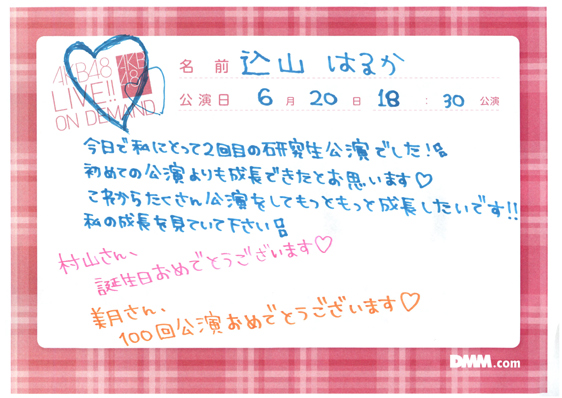 AKB48
LIVE!!
ON DEMAND
AKB
48
名前 込山 はるか
公演日 6月 20日 18:30 公演
今日で私にとって2回目の研究生公演でした!!
初めての公演よりも成長できたとお思います♡
これからたくさん公演をしてもっともっと成長したいです!!
私の成長を見ていて下さい!!
村山さん、
誕生日おめでとうございます♡
美月さん、
100回公演おめでとうございます♡
DMM.com